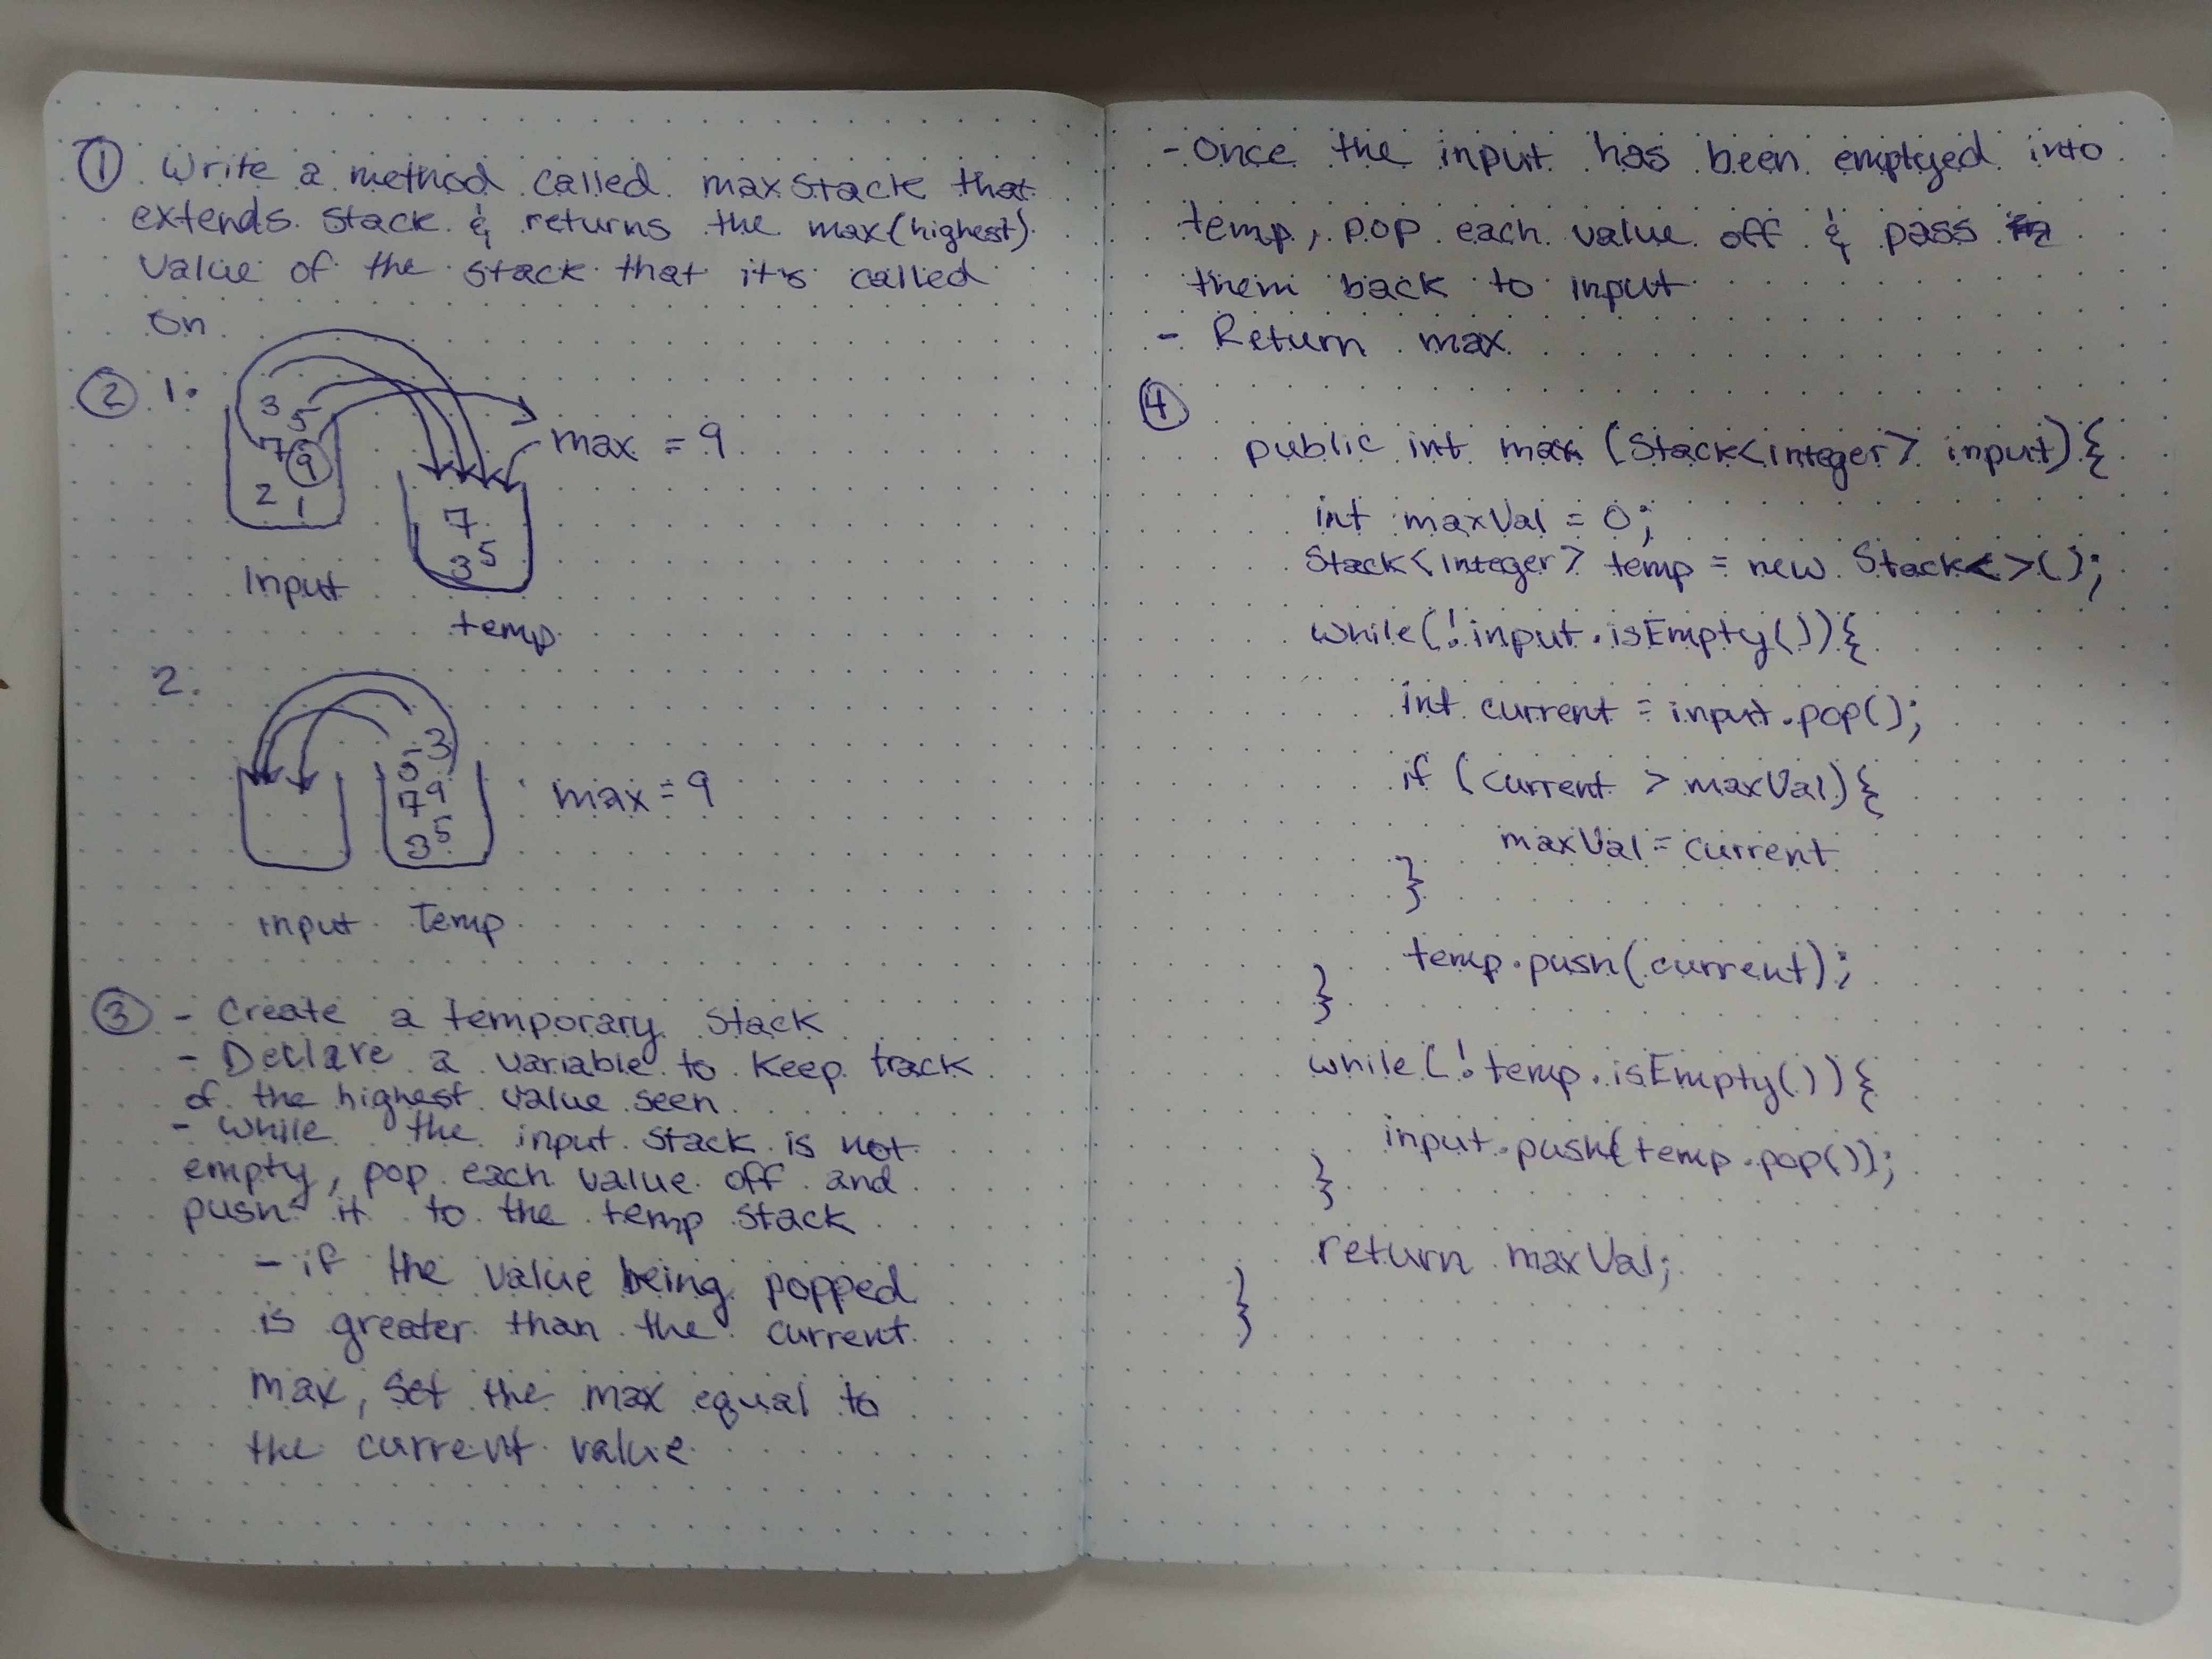 ① Write a method called maxStack that
extends Stack & returns the max (highest)
value of the stack that it's called
on
② 1.
3
5
7 9
2 1
max = 9
7
3 5
Input
temp
2.
3
5
7 9
3 5
max = 9
input Temp
③ - Create a temporary stack
- Declare a variable to keep track
of the highest value seen
- while the input stack is not
empty, pop each value off and
push it to the temp stack
- if the value being popped
is greater than the current
max, set the max equal to
the current value
- Once the input has been emptyed into
temp, pop each value off & pass
them back to input
- Return max
④
public int max (Stack<integer> input){
int maxVal = 0;
Stack<Integer> temp = new Stack<>();
while(!input.isEmpty()){
int current = input.pop();
if (current > maxVal){
maxVal = current
}
temp.push(current);
}
while(!temp.isEmpty()){
input.push(temp.pop());
}
return maxVal;
}